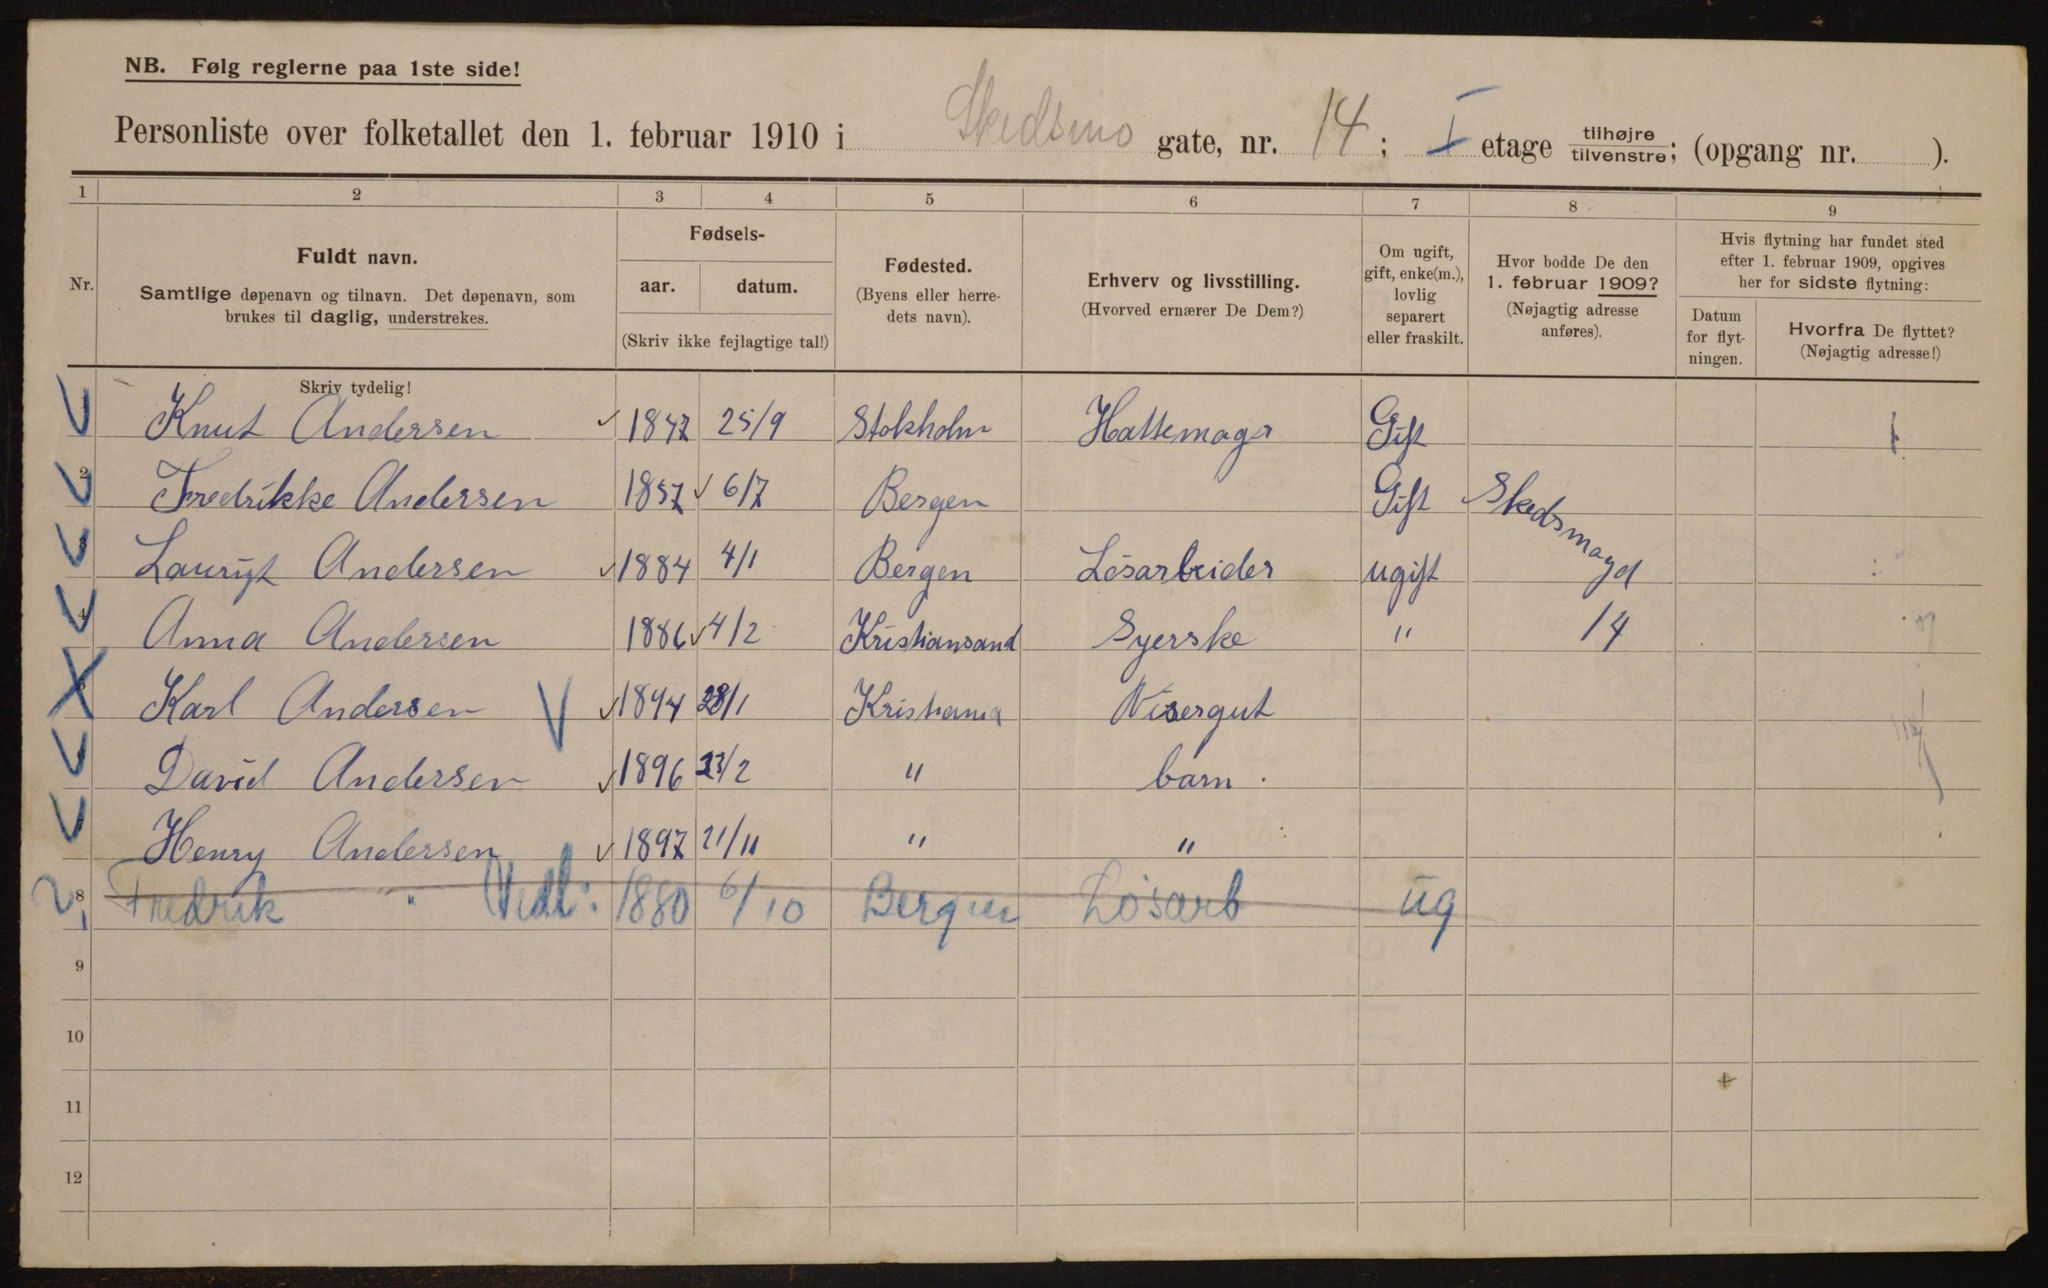 NB. Følg reglerne paa 1ste side!
Personliste over folketallet den 1. februar 1910 i Skedsmo gate, nr. 14; I etage tilhøjre/tilvenstre; (opgang nr. ).
1 2 3 4 5 6 7 8 9
Nr.
Fuldt navn.
Samtlige døpenavn og tilnavn. Det døpenavn, som
brukes til daglig, understrekes.
Fødsels-
aar. datum.
(Skriv ikke fejlagtige tal!)
Fødested.
(Byens eller herre-
dets navn).
Erhverv og livsstilling.
(Hvorved ernærer De Dem?)
Om ugift,
gift, enke(m.),
lovlig
separert
eller fraskilt.
Hvor bodde De den
1. februar 1909?
(Nøjagtig adresse
anføres).
Hvis flytning har fundet sted
efter 1. februar 1909, opgives
her for sidste flytning:
Datum
for flyt-
ningen.
Hvorfra De flyttet?
(Nøjagtig adresse!)
Skriv tydelig!
Knut Andersen 1847 25/9 Stokholm Hattemager Gift
2 Fredrikke Andersen 1857 6/7 Bergen Gift Skedsmogd
3 Lauryt Andersen 1884 4/1 Bergen Løsarbeider ugift
4 Anna Andersen 1886 4/2 Kristiansand Syerske " 14
Karl Andersen 1894 28/1 Kristiania Visergut
David Andersen 1896 23/2 " barn.
Henry Andersen 1897 21/11 " "
8 Fredrik " Vedl: 1880 6/10 Bergen Løsarb ug
9
10
11
12